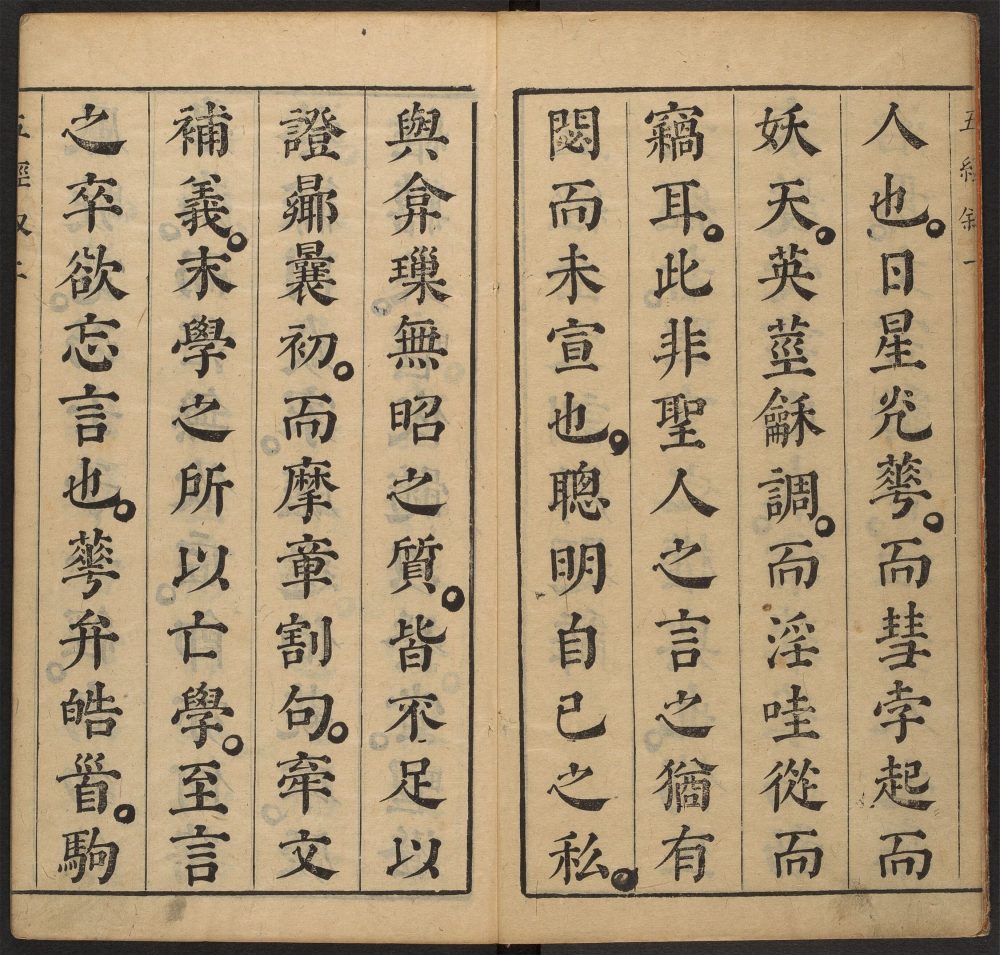 五經叙一
人也。日星光華。而彗孛起而
妖天。英莖龢調。而淫哇從而
竊耳。此非聖人之言之猶有
閟而未宣也。聰明自已之私。
與弇璅無昭之質。皆不足以
證曩初。而摩章割句。牽文
補義。末學之所以亡學。至言
之卒欲忘言也。華弁皓首。駒
五經叙二